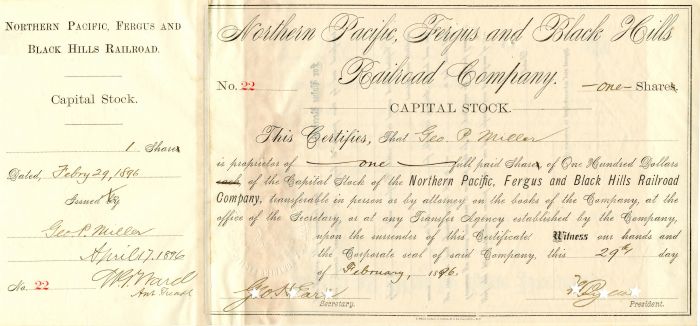 Northern Pacific, Fergus and
Black Hills Railroad.
Capital Stock.
1 Share
Dated, Febry 29, 1896
Issued
Geo P. Miller
April 17. 1896
No. 22
W. G. Ward
Northern Pacific, Fergus and Black Hills
Railroad Company.
No. 22
one Share
CAPITAL STOCK.
This Certifies, That Geo P. Miller
is proprietor of one full paid Share of One Hundred Dollars
each of the Capital Stock of the Northern Pacific, Fergus and Black Hills Railroad
Company, transferable in person or by attorney on the books of the Company, at the
office of the Secretary, or at any Transfer Agency established by the Company,
upon the surrender of this Certificate. Witness our hands and
the Corporate seal of said Company, this 29th day
of February, 1896.
Geo H Earl
Secretary.
President.